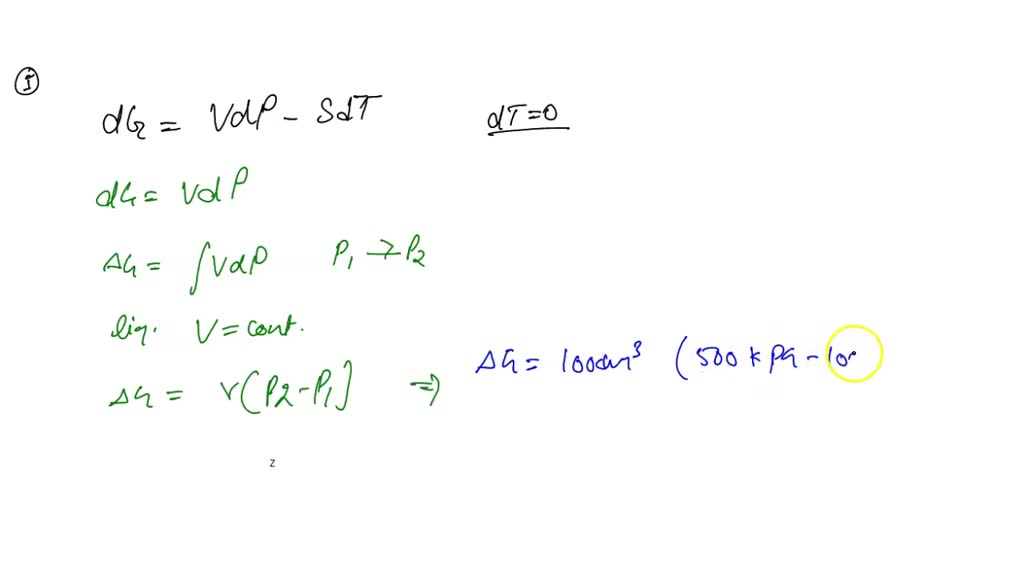 ①
dG = VdP - SdT dT=0
dG = VdP
ΔG = ∫VdP P₁ → P₂
liq. V = cont.
ΔG = V(P2-P₁] ⇒ ΔG = 100cm³ (500 kPa - 100
z